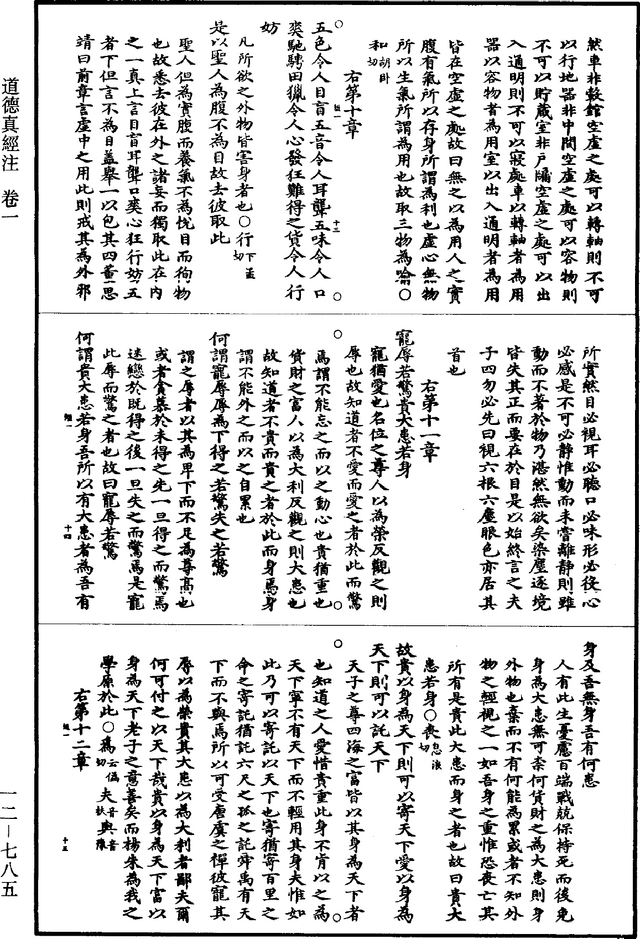 道德真經注 卷一
然車非轂館空虛之處可以轉軸則不可
以行地器非中間空虛之處可以容物則
不可以貯藏室非戶牖空虛之處可以出
入通明則不可以寢處車以轉軸者為用
器以容物者為用室以出入通明者為用
皆在空虛之處故曰無之以為用人之實
腹有氣所以存身所謂為利也虛心無物
所以生氣所謂為用也故取三物為喻○
和胡卧切
右第十章
五色令人目盲五音令人耳聾五味令人口
爽馳騁田獵令人心發狂難得之貨令人行
妨
凡所欲之外物皆害身者也○行下孟切
是以聖人為腹不為目故去彼取此
聖人但為實腹而養氣不為悅目而徇物
也故悉去彼在外之諸妄而獨取此在內
之一真上言目盲耳聾口爽心狂行妨五
者下但言不為目蓋舉一以包其四董思
靖曰前章言虛中之用此則戒其為外邪
所實然目必視耳必聽口必味形必役心
必感是不可必靜惟動而未嘗離靜則雖
動而不著於物乃湛然無欲矣染塵逐境
皆失其正而要在於目是以始終言之夫
子四勿必先曰視六根六塵眼色亦居其
首也
右第十一章
寵辱若驚貴大患若身
寵猶愛也名位之尊人以為榮反觀之則
辱也故知道者不愛而愛之者於此而驚
焉謂不能忘之而以之動心也貴猶重也
貨財之富人以為大利反觀之則大患也
故知道者不貴而貴之者於此而身焉身
謂不能外之而以之自累也
何謂寵辱辱為下得之若驚失之若驚
謂之辱者以其為卑下而不足為尊高也
或者貪慕於未得之先一旦得之而驚焉
迷戀於既得之後一旦失之而驚焉是寵
此辱而驚之者也故曰寵辱若驚
何謂貴大患若身吾所以有大患者為吾有
身及吾無身吾有何患
人有此生憂慮百端戰兢保持死而後免
身為大患無可柰何貨財之為大患則身
外物也棄而不有何能為累或者不知外
物之輕視之一如吾身之重惟恐喪亡其
所有是貴此大患而身之者也故曰貴大
患若身○喪息浪切
故貴以身為天下則可以寄天下愛以身為
天下則可以託天下
天子之尊四海之富皆以其身為天下者
也知道之人愛惜貴重此身不肯以之為
天下寧不有天下而不輕用其身夫惟如
此乃可以寄託以天下也寄猶寄百里之
命之寄託猶託六尺之孤之託舜禹有天
下而不與焉所以可受唐虞之禪彼寵其
辱以為榮貴其大患以為大利者鄙夫爾
何可付之以天下哉貴以身為天下富以
身為天下老子之意善矣而楊朱為我之
學原於此○為云偽切夫音扶與音豫
右第十二章
一二—七八五